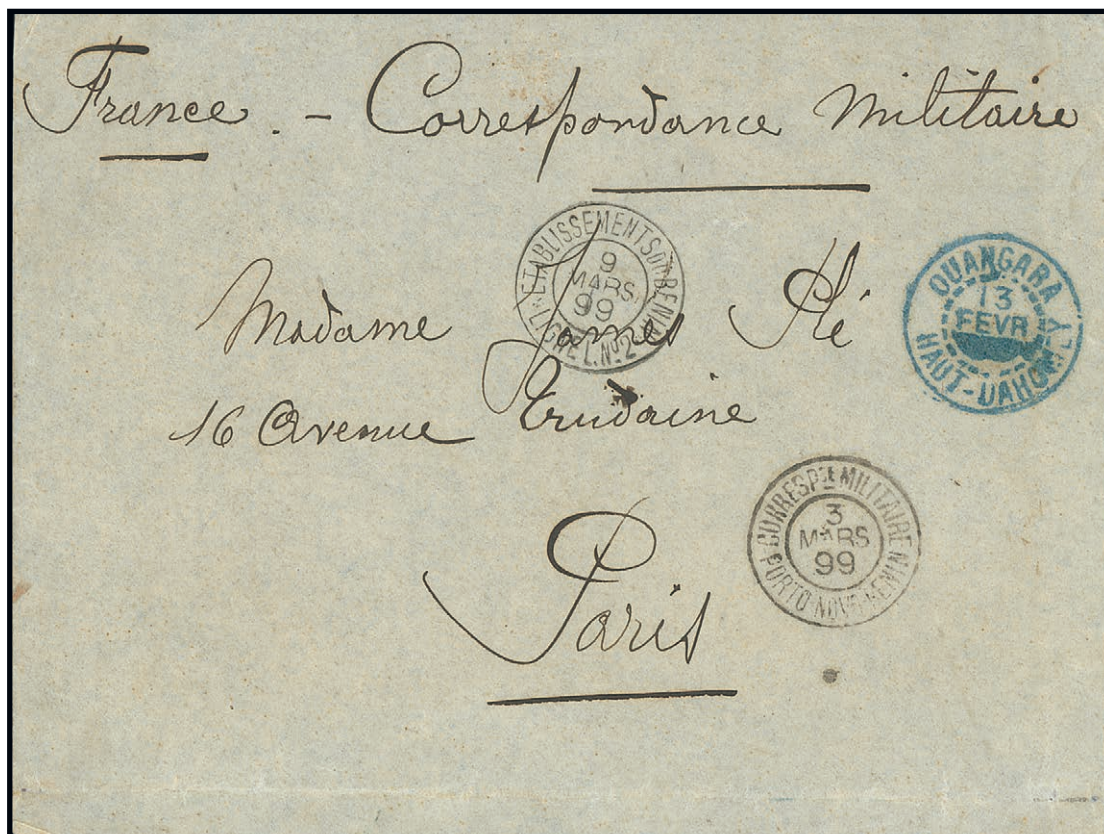 France. - Correspondance militaire
ETABLISSEMENTS DU BENIN
9
MARS
99
LIGNE L. Nº 2
OUANGARA
13
FEVR
HAUT-DAHOMEY
Madame James Plé
16 Avenue Trudaine
CORRESPce MILITAIRE
3
MARS
99
PORTO-NOVO BENIN
Paris